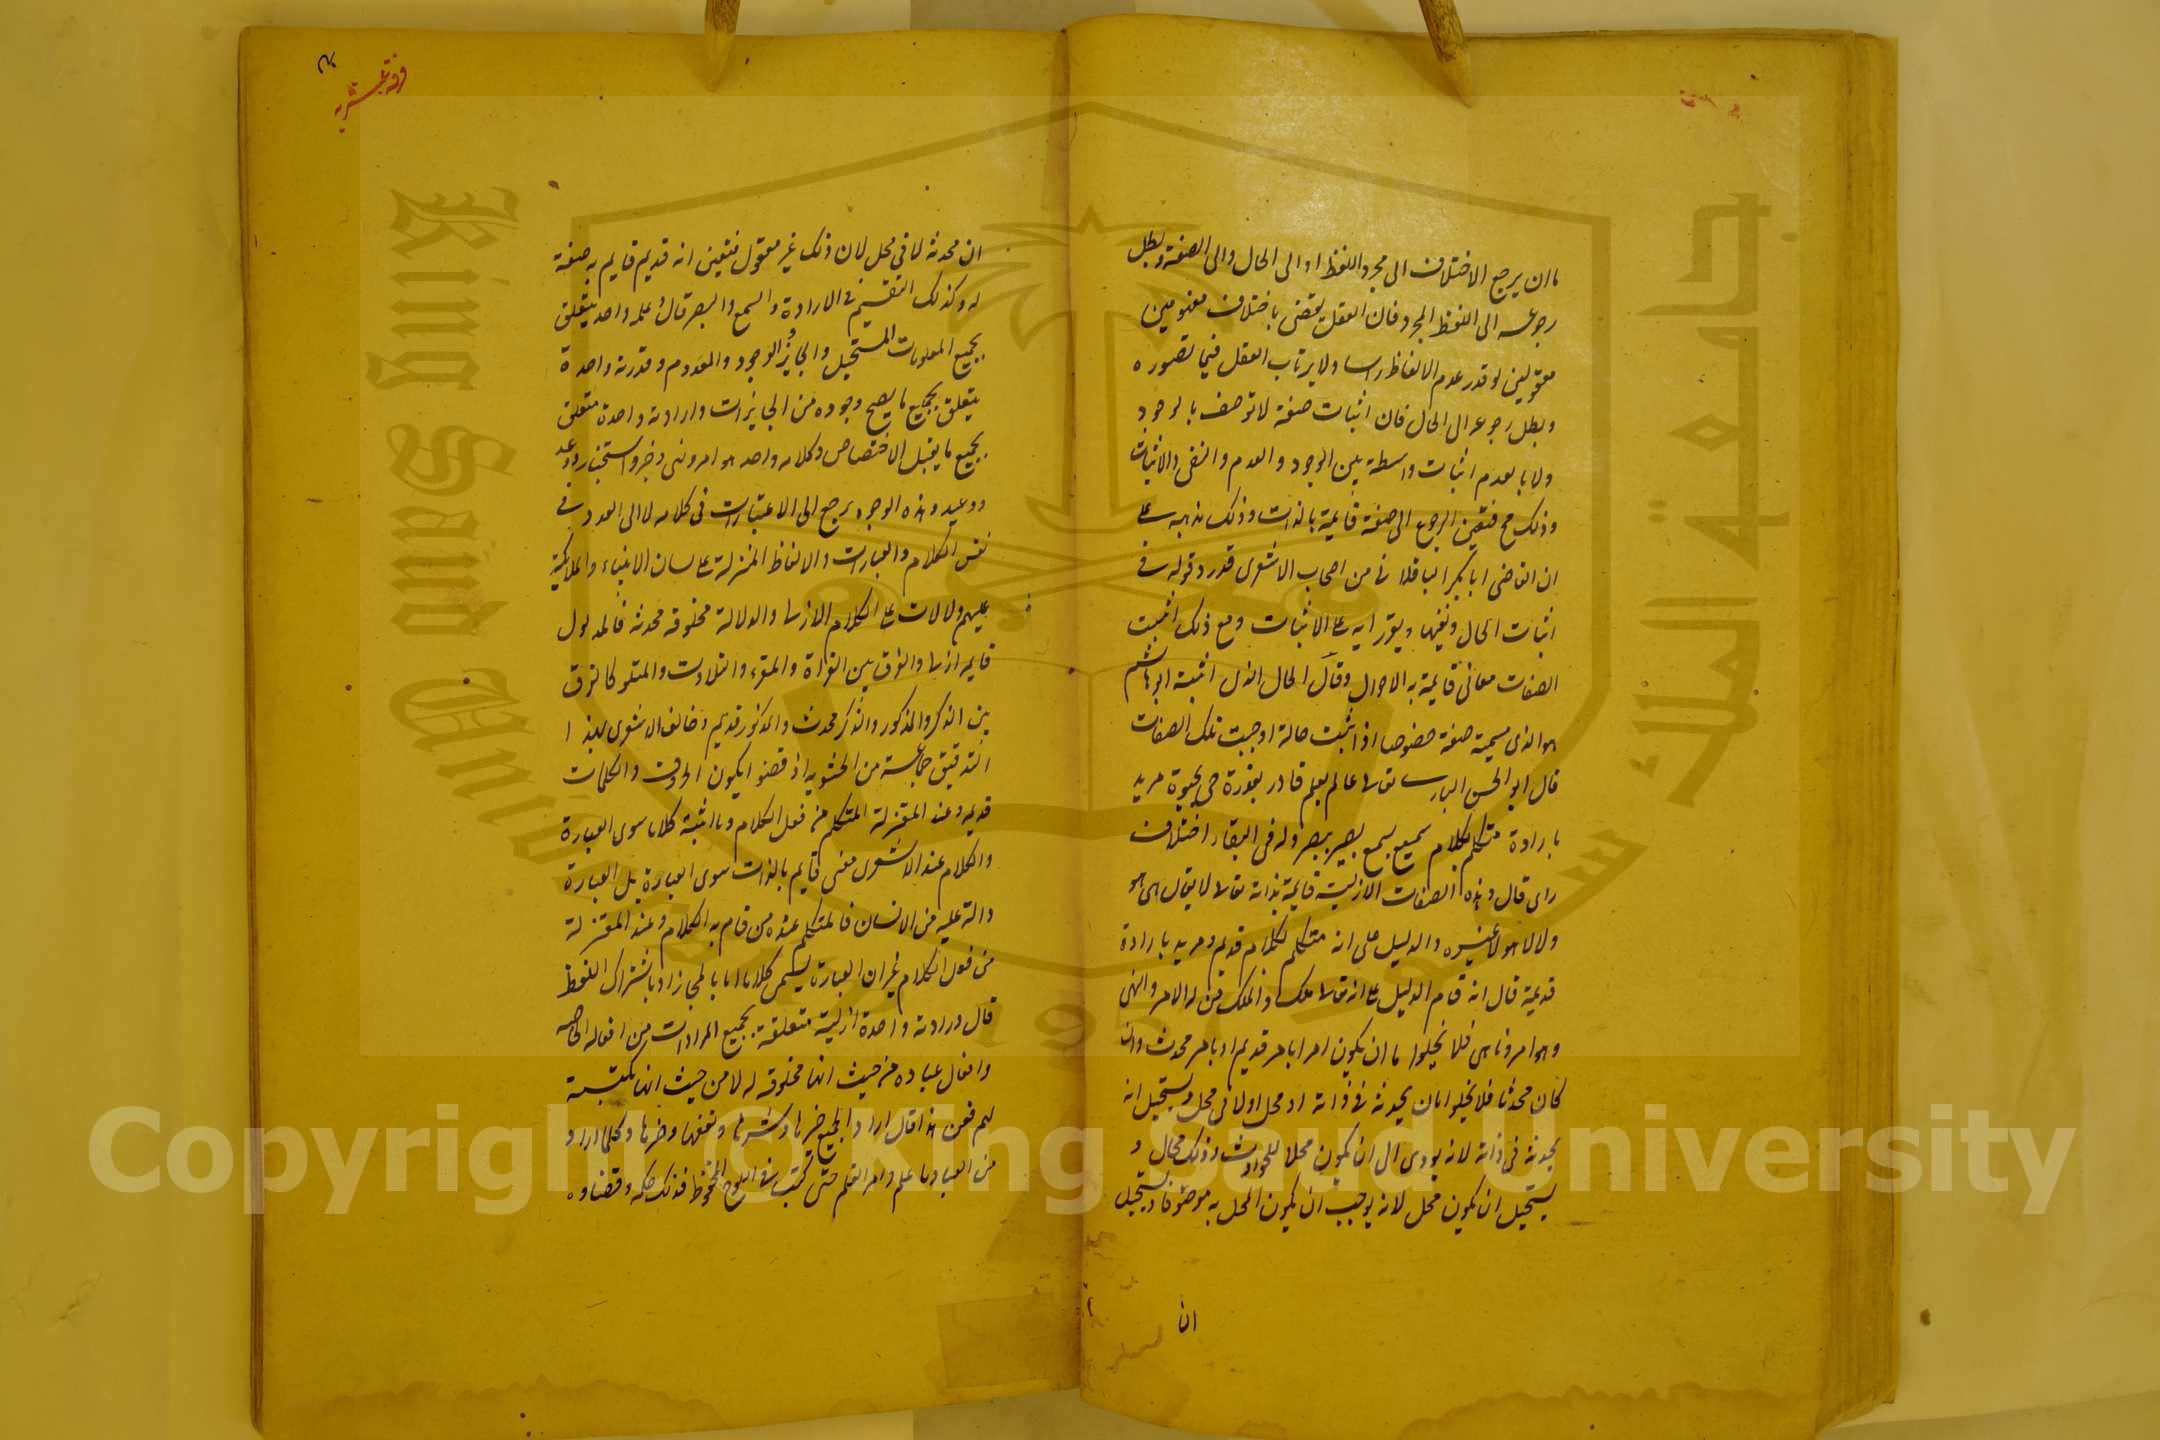 ما ان يرجع الاختلاف الى مجرد اللفظ او الى الحال والى الصفة وبطل
رجوعه الى اللفظ المجرد فان العقل يقضى باختلاف مفهومين
معقولين لو قدر عدم الالفاظ راسا ولا يرتاب العقل فيما تصوره
وبطل رجوعه الى الحال فان اثبات صفة لا توصف بالوجود
ولا بالعدم اثبات واسطة بين الوجود والعدم والنفى والاثبات
وذلك مح فتعين الرجوع الى صفة قايمة بالذات وذلك مذهبه على
ان القاضى ابا بكر الباقلانى من اصحاب الاشعرى قد ردد قوله فى
اثبات الحال ونفيها وتقرر رايه على الاثبات ومع ذلك اثبت
الصفات معانى قايمة به لا احوال وقال الحال الذى اثبته ابو هاشم
هو الذى يسميه صفة خصوصا اذا اثبت حالة اوجبت تلك الصفات
قال ابو الحسن البارى تعالى عالم بعلم قادر بقدرة حى بحيوة مريد
بارادة متكلم بكلام سميع بسمع بصير ببصر وله فى البقاء اختلاف
راى قال وهذه الصفات الازلية قايمة بذاته تعالى لا يقال هى هو
ولا لا هو لا غيره والدليل على انه متكلم بكلام قديم ومريد بارادة
قديمة قال انه قام الدليل على انه تعالى ملك والملك من له الامر والنهى
وهو امر وناهى فلا يخلوا ما ان يكون امرا بامر قديم او بامر محدث وان
كان محدثا فلا يخلوا ما ان يحدثه فى ذاته او محل او لا فى محل ويستحيل انه
يحدثه فى ذاته لانه يودى الى ان يكون محلا للحوادث وذلك محال و
يستحيل ان يكون محل لانه يوجب ان يكون المحل به موصوفا ويستحيل
ان
فرقة عشرية
ان محدثه لا فى محل لان ذلك غير معقول فتعين انه قديم قايم به صفة
له وكذلك التقسيم فى الارادة والسمع والبصر قال وعلمه واحد يتعلق
بجميع المعلومات المستحيل والجايز والوجود والمعدوم وقدرته واحدة
يتعلق بجميع ما يصح وجوده من الجايزات وارادته واحدة متعلق
بجميع ما يقبل الاختصاص وكلامه واحد هو امر ونهى وخبر واستخبار ووعد
ووعيد وهذه الوجوه يرجع الى الاعتبارات فى كلامه لا الى العدد فى
نفس الكلام والعبارات والالفاظ المنزلة على لسان الانبياء والملايكة
عليهم دلالات على الكلام الازلى والدلالة مخلوقة محدثه فالمدلول
قديم ازلى والفرق بين القراة والمقرء والتلاوت والمتلو كالفرق
بين الذكر والمذكور والذكر محدث والمذكور قديم وخالف الاشعرى بهذا
التدقيق جماعة من الحشويه اذ قضو ايكون الحروف والكلمات
قديمه وعند المعتزلة المتكلم من فعل الكلام وما اثبته كلاما سوى العبارة
والكلام عند الاشعرى معنى قايم بالذات سوى العبارة بل العبارة
دالة عليه من الانسان فالمتكلم عنده من قام به الكلام وعند المعتزلة
من فعل الكلام غير ان العبارة يسمى كلاما اما بالمجاز او باشتراك اللفظ
قال وارادته واحدة ازلية متعلقة بجميع المرادات من افعاله الخاصه
وافعال عباده من حيث انها مخلوقه له لا من حيث انها مكتسبة
لهم فعن هذا قال اراد الجميع خيرها وشرها ونفعها وضرها وكلما اراد
من العباد ما علم وامر القلم حتى كتب فى اللوح المحفوظ فذلك حكمه وقضاوه
Copyright © King Saud University
King Saud University
جامعة الملك سعود
1957